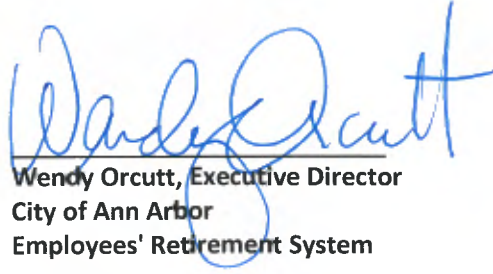 Wendy Orcutt
Wendy Orcutt, Executive Director
City of Ann Arbor
Employees' Retirement System